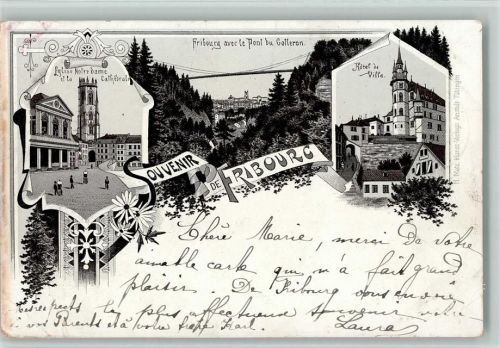 Fribourg avec le Pont du Gotteron.
Eglise Notre Dame
et la Cathédrale
Hôtel de
Ville.
SOUVENIR
DE FRIBOURG
Chère Marie, merci de votre
aimable carte qui m'a fait grand
plaisir. De Fribourg vous envoie
le plus affectueux souvenir votre
Laura
Mes respects
à vos Parents et à votre frère Karl.